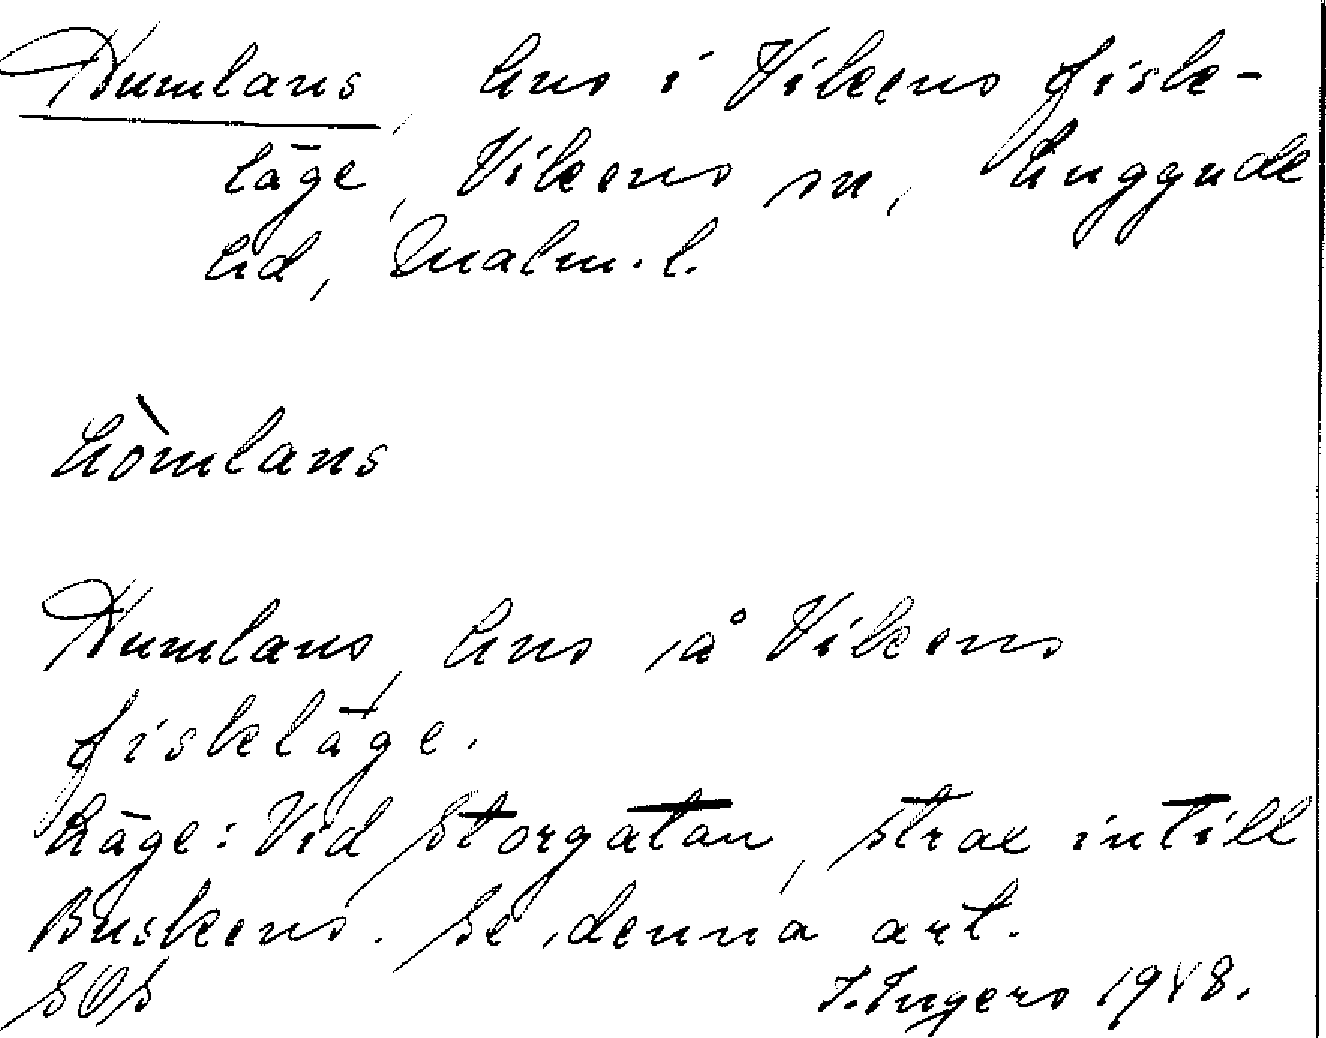 Humlans, hus i Vikens fisk-
läge, Vikens sn, Luggude
hd, Malm. l.
hòmlans
Humlans, hus å Vikens
fiskeläge.
Läge: Vid Storgatan, strax intill
Buskens. Se denna art.
SOS I. Ingers 1948.